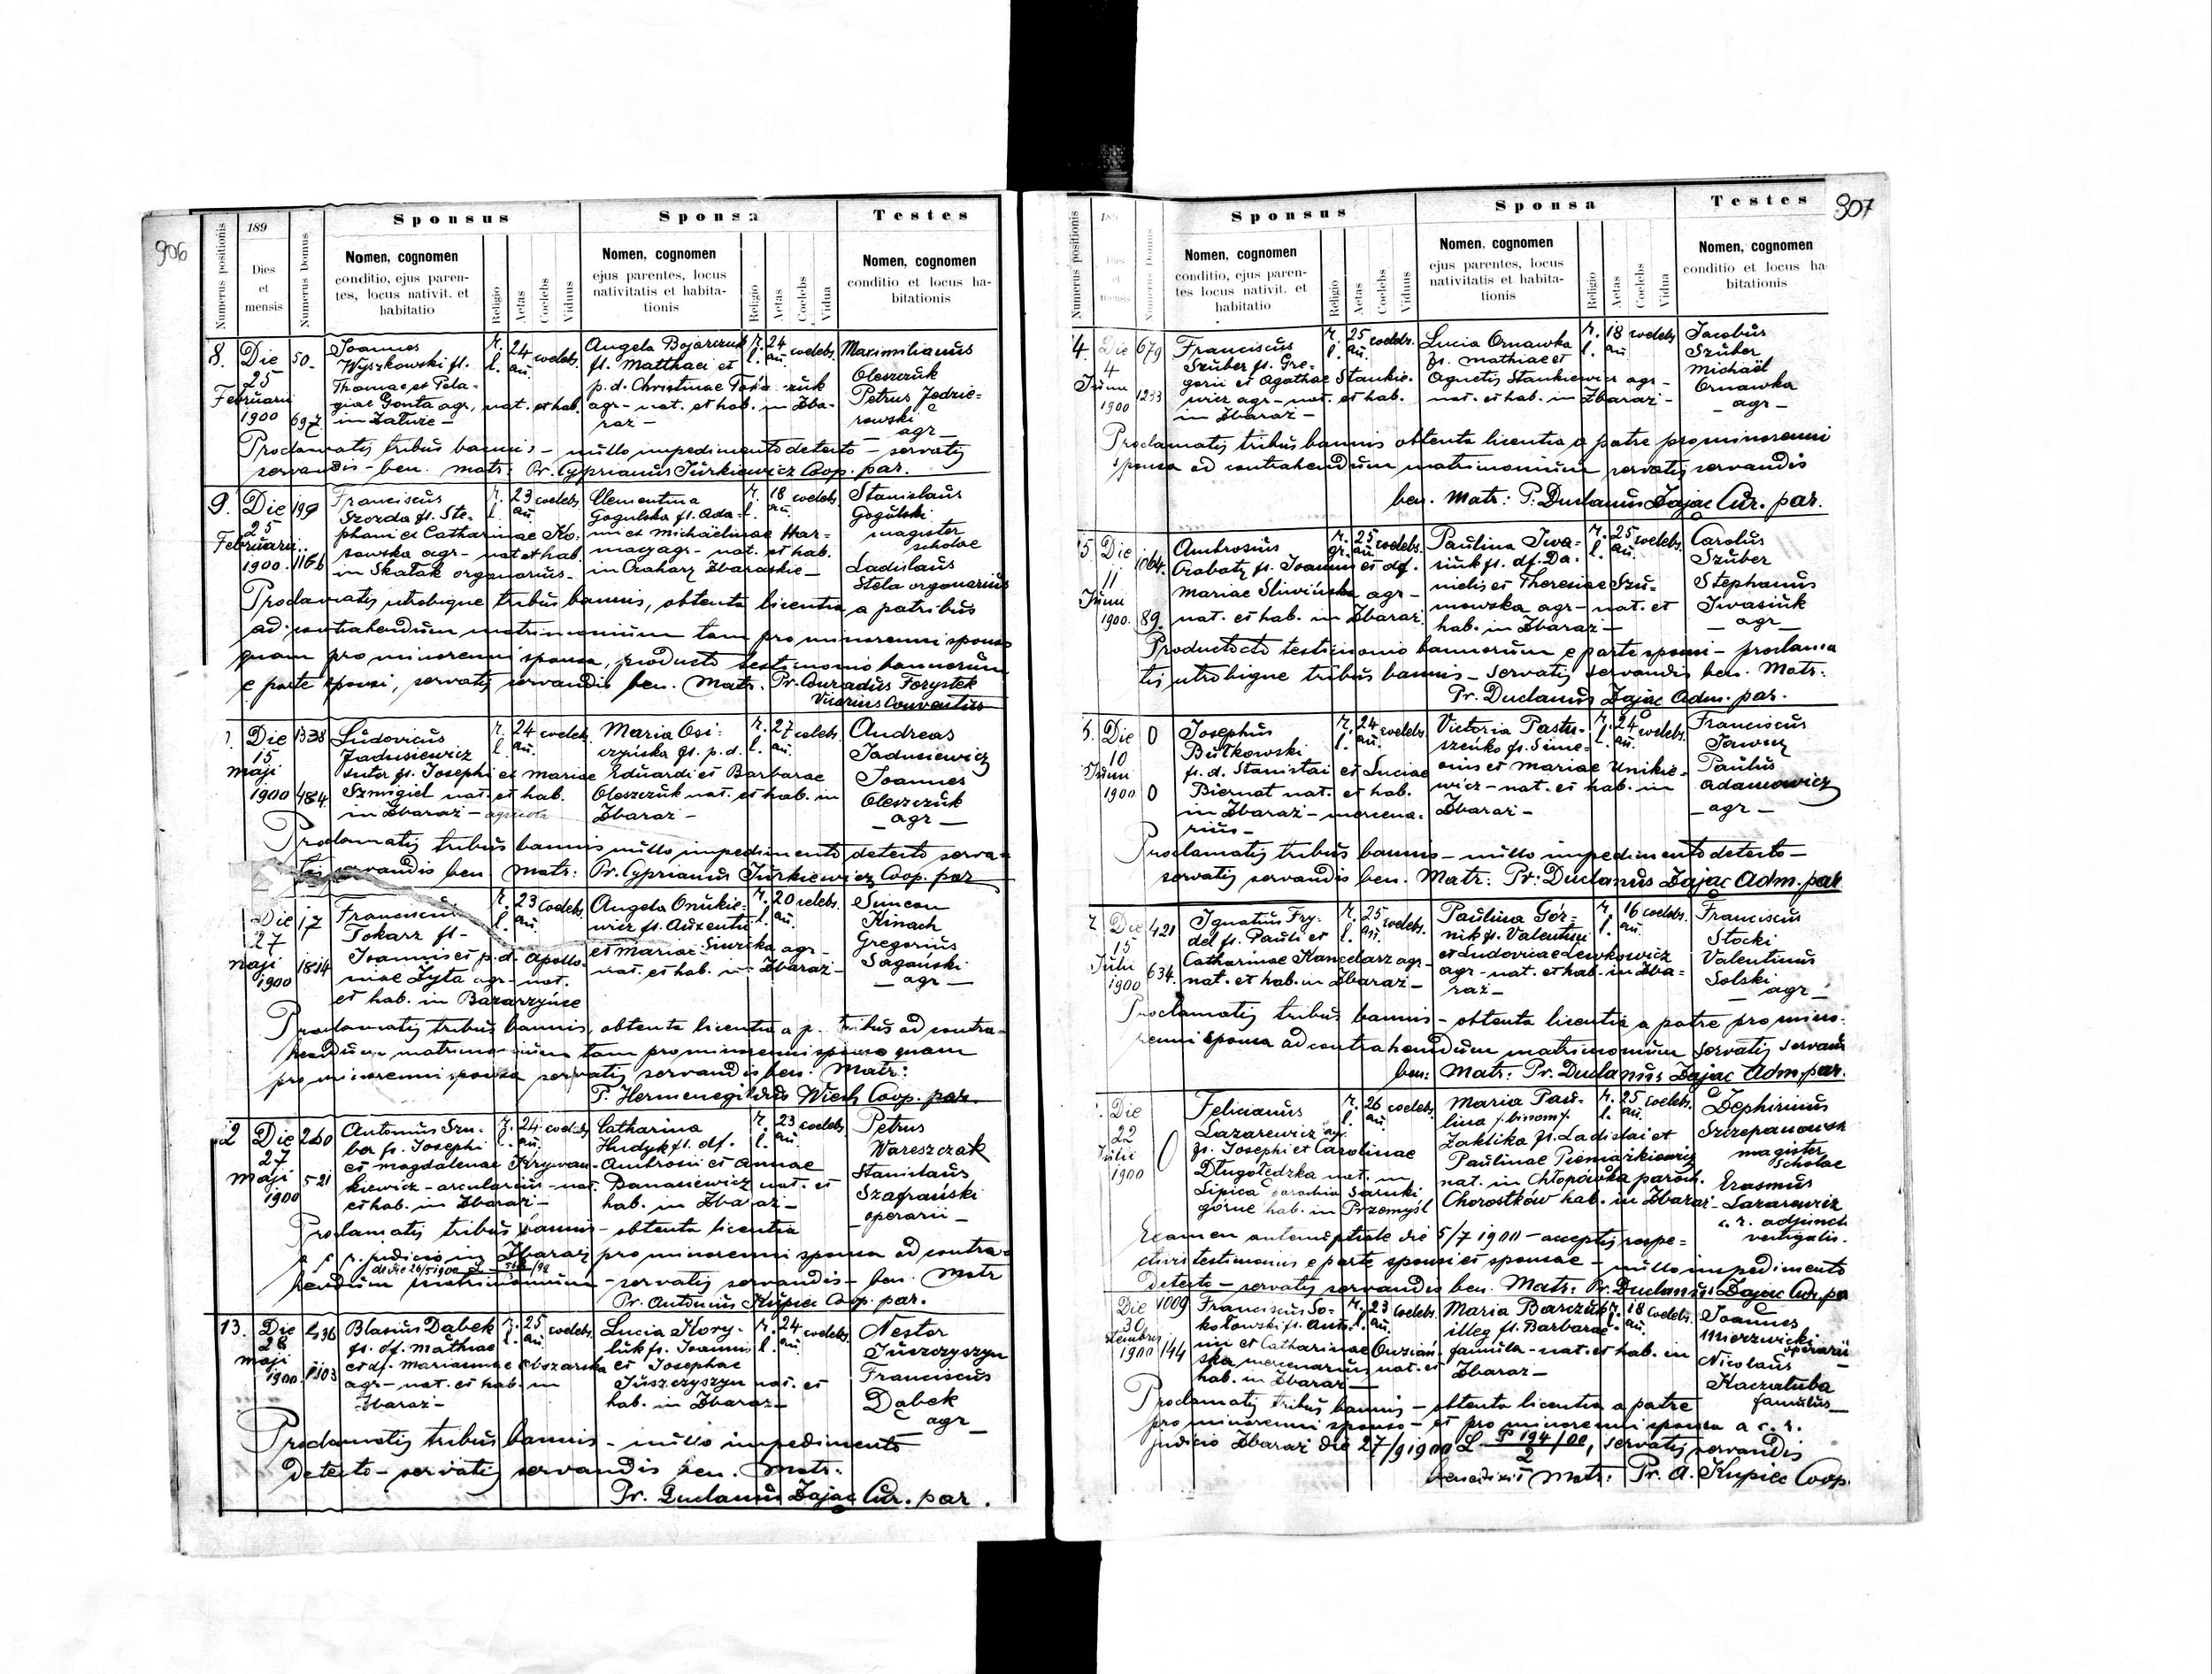 906
Numerus positionis
189
Dies
et
mensis
Numerus Domus
Sponsus
Nomen, cognomen
conditio, ejus paren-
tes, locus nativit. et
habitatio
Religio
Aetas
Coelebs
Viduus
Sponsa
Nomen, cognomen
ejus parentes, locus
nativitatis et habita-
tionis
Religio
Aetas
Coelebs
Vidua
Testes
Nomen, cognomen
conditio et locus ha-
bitationis
8.
Die
25
Februarii
1900
50.
697
Joannes
Wyszkowski fl.
Thomae et Pela-
giae Gonta agr, nat. et hab.
in Załuże -
r. l.
24 an.
coelebs
Angela Bojarczuk
fl. Matthaei et
p. d. Christinae
agr - nat. et hab. in Zba-
raż -
r. l.
24 an.
coelebs.
Maximilianus
Oleszczuk
Petrus Jędrze-
rowski
- agr -
Proclamatis tribus bannis - nullo impedimento detecto - servatis
servandis - ben. matr: Pr. Cyprianus Jurkiewicz Coop. par.
9.
Die
25
Februarii
1900.
199
1166
Franciscus
Szozda fl. Ste-
phani et Catharinae Ko-
sowska agr - nat et hab
in Skałat organarius -
r. l.
23 an.
coelebs
Clementina
Gogulska fl. Ada-
mi et Michaëlinae Har-
magagr - nat. et hab.
in Czahary Zbaraskie -
r. l.
18 an.
coelebs
Stanislaus
Gogulski
magister
scholae
Ladislaus
Stela organarius
Proclamatis utrobique tribus bannis, obtenta licentia a patribus
ad contrahendum matrimonium tam pro minorenni sponso
quam pro minorenni sponsa, producto testimonio bannorum
e parte sponsi, servatis servandis ben. Matr. Pr. Conradus Forystek
Vicarius Conventus
Die
15
Maji
1900
1338
484
Ludovicus
Jadusiewicz
sutor fl. Josephi et Mariae
Szmigiel nat. et hab.
in Zbaraż - agricola
r. l.
24 an.
coeleb.
Maria Osi-
czyńska fl. p. d.
Eduardi et Barbarae
Oleszczuk nat. et hab. in
Zbaraż -
r. l.
27 an.
coelebs
Andreas
Jadusiewicz
Joannes
Oleszczuk
- agr -
Proclamatis tribus bannis nullo impedimento detecto serva-
tis servandis ben matr: Pr. Cyprianus Jurkiewicz Coop. par
Die
27
Maji
1900
17
1814
Franciscus
Tokarz fl -
Joannis et p. d. Apollo-
niae Zyta agr - nat.
et hab. in Bazarzyńce
r. l.
23 an.
coelebs
Angela Onukie-
wicz fl. Auxentii
et Mariae agr -
nat. et hab. in Zbaraż -
r. l.
20 an.
coelebs
Simeon
Kinach
Gregorius
Sagański
- agr -
Proclamatis tribus bannis, obtenta licentia a p. tribus ad contra-
hendum matrimonium tam pro minorenni sponso quam
pro minorenni sponsa servatis servandis ben. Matr:
P. Hermenegildus Wiech Coop. par.
12
Die
27
Maji
1900
260
521
Antonius Szu-
ber fl. Josephi
et Magdalenae Krywan-
kiewicz - arcularius - nat.
et hab. in Zbaraż -
r. l.
24 an.
coelebs
Catharina
Hudyk fl. df.
Ambrosii et Annae
Bananiewicz nat. et
hab. in Zbaraż -
r. l.
23 an.
coelebs
Petrus
Wareszczak
Stanislaus
Szafrański
- operarii -
Proclamatis tribus bannis - obtenta licentia
a c. r. judicio in Zbaraż pro minorenni sponsa ad contra-
de die 26/5 1900
hendum matrimonium - servatis servandis - ben. Matr
Pr. Antonius Kupiec Coop. par.
13.
Die
28
Maji
1900
436
1103
Blasius Dąbek
fl. df. Mathiae
et df. Mariannae Obszarska
agr - nat. et hab. in
Zbaraż -
r. l.
25 an.
coelebs
Lucia Hory-
luk fl. Joannis
et Josephae
Juszczyszyn nat. et
hab. in Zbaraż -
r. l.
24 an.
coelebs
Nestor
Juszczyszyn
Franciscus
Dąbek
- agr -
Proclamatis tribus bannis - nullo impedimento
detecto - servatis servandis ben. Matr:
Pr. Duclanus Zając Cur. par.
907
Numerus positionis
Dies
et
mensis
Numerus Domus
Sponsus
Nomen, cognomen
conditio, ejus paren-
tes locus nativit. et
habitatio
Religio
Aetas
Coelebs
Viduus
Sponsa
Nomen, cognomen
ejus parentes, locus
nativitatis et habita-
tionis
Religio
Aetas
Coelebs
Vidua
Testes
Nomen, cognomen
conditio et locus ha-
bitationis
14.
Die
4
Junii
1900
679
1233
Franciscus
Szuber fl. Gre-
gorii et Agathae Stankie-
wicz agr - nat. et hab.
in Zbaraż -
r. l.
25 an.
coelebs.
Lucia Ornawka
fl. Mathiae et
Agnetis Stankiewicz agr -
nat. et hab. in Zbaraż -
r. l.
18 an
coelebs.
Jacobus
Szuber
Michaël
Ornawka
- agr -
Proclamatis tribus bannis obtenta licentia a patre pro minorenni
sponsa ad contrahendum matrimonium servatis servandis
ben. Matr: P. Duclanus Zając Cur. par.
15
Die
11
Junii
1900.
1064.
89.
Ambrosius
Crabaty fl. Joannis et df.
Mariae Śliwińska agr -
nat. et hab. in Zbaraż
r. gr.
25 an.
coelebs
Paulina Iwa-
siuk fl. df. Da-
nielis et Theresiae Szu-
mowska agr - nat. et
hab. in Zbaraż -
r. l.
25 an.
coelebs.
Carolus
Szuber
Stephanus
Iwasiuk
- agr -
Producto testimonio bannorum e parte sponsi - proclama
tis utrobique tribus bannis - servatis servandis ben. Matr:
Pr. Duclanus Zając Adm. par.
Die
10
Junii
1900
0
0
Josephus
Bułkowski
fl. d. Stanislai et Luciae
Biernat nat. et hab.
in Zbaraż - mercena-
rius -
r. l.
24 an.
coelebs
Victoria Pastu-
szeńko fl. Sime-
onis et Mariae Unikie-
wicz - nat. et hab. in
Zbaraż -
r. l.
24 an.
coelebs.
Franciscus
Paulus
Adamowicz
- agr -
Proclamatis tribus bannis - nullo impedimento detecto -
servatis servandis ben. Matr: Pr: Duclanus Zając Adm. par
Die
15
Julii
1900
421
634.
Ignatius Fry-
del fl. Pauli et
Catharinae Kancelarz agr -
nat. et hab. in Zbaraż -
r. l.
25 an.
coelebs.
Paulina Gór-
nik fl. Valentini
et Ludovicae Lewkowicz
agr - nat. et hab. in Zba-
raż -
r. l.
16 an.
coelebs.
Franciscus
Stocki
Valentinus
Solski
- agr -
Proclamatis tribus bannis - obtenta licentia a patre pro mino-
renni sponsa ad contrahendum matrimonium servatis servan
ben: Matr: Pr. Duclanus Zając Adm. par.
Die
22
Julii
1900
0
Felicianus
Lazarewicz
fl. Josephi et Carolinae
Długołędzka nat. in
Lipica parochia Sarnki
górne hab. in Przemyśl
r. l.
26 an.
coelebs
Maria Pau-
lina /: binom:/
Zaklika fl. Ladislai et
Paulinae Pieniążkiewicz
nat. in Chłopówka paroch.
Chorostków hab. in Zbaraż -
r. l.
25 an.
coelebs.
Zephirinus
Szczepanowski
magister
scholae
Erasmus
Lazarewicz
c. r. adjunct
vectigalis.
Examen antenuptiale die 5/7 1900 - acceptis respe-
ctivis testimoniis e parte sponsi et sponsae - nullo impedimento
detecto - servatis servandis ben. Matr: Pr. Duclanus Zając Cur. pa
Die
30
1900
1009
144
Franciscus So-
kołowski fl. Anto-
nii et Catharinae Guzian-
ska mercenarius nat. et
hab. in Zbaraż -
r. l.
23 an.
coelebs
Maria Barczuk
illeg fl. Barbarae
famula - nat. et hab. in
Zbaraż -
r. l.
18 an.
coelebs.
Joannes
Mierzwicki
operarii
Nicolaus
Kaczałuba
famulus -
Proclamatis tribus bannis - obtenta licentia a patre
pro minorenni sponso - et pro minorenni sponsa a c. r.
judicio Zbaraż die 27/9 1900 L P 194/00 / 2, servatis servandis
benedixit Matr: Pr. A. Kupiec Coop.